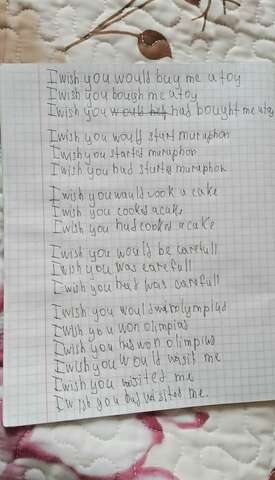 I wish you would buy me a toy
I wish you bough me a toy
I wish you had bought me a toy
I wish you would start maraphon
I wish you started maraphon
I wish you had started maraphon
I wish you would cook a cake
I wish you cooked a cake
I wish you had cooked a cake
I wish you would be carefull
I wish you was carefull
I wish you had was carefull
I wish you would win olympiad
I wish you won olimpias
I wish you had won olimpias
I wish you would visit me
I wish you visited me
I wish you had visited me.